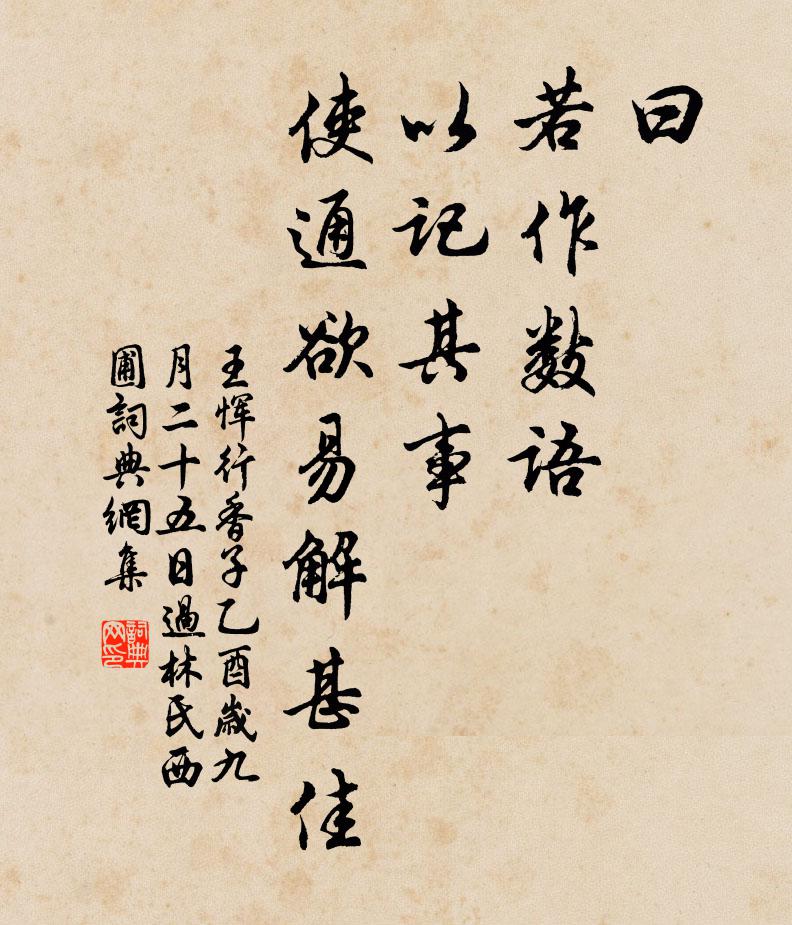 曰
若作数语
以记其事
使通欲易解甚佳
王恽行香子乙酉歲九
月二十五日過林氏西
圃詞典網集
詞典
网印